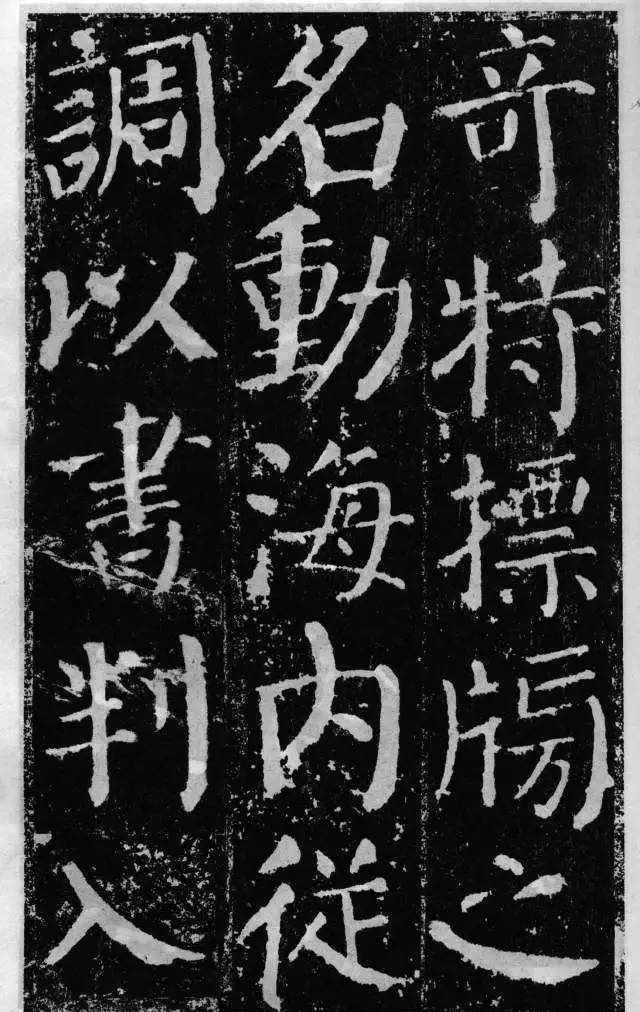 竒特標牓之
名動海内従
調以書判入